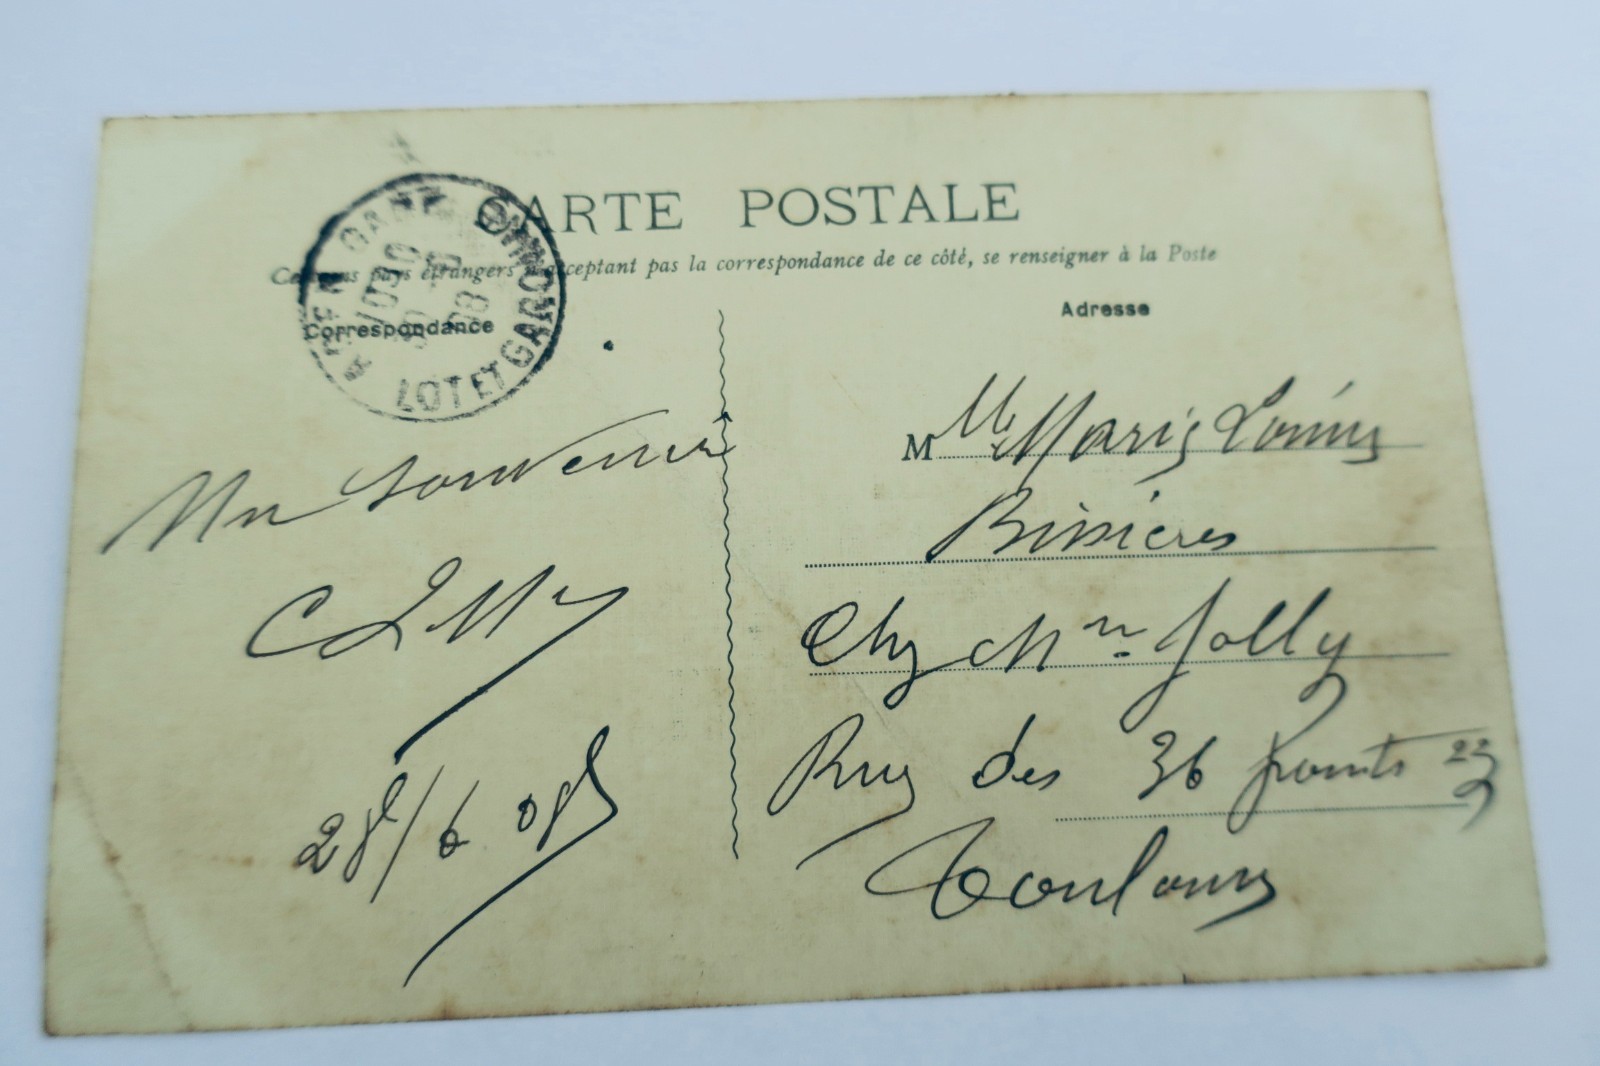 CARTE POSTALE
Certains pays étrangers n'acceptant pas la correspondance de ce côté, se renseigner à la Poste
Correspondance
Adresse
LOT ET GARONNE
Un souvenir
28/6 08
M Mlle Marie Louise
Bissières
Chez Mme Jolly
Rue des 36 ponts 22
Toulouse